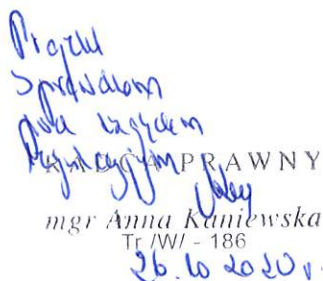 Projekt
sprawdzono
pod względem
RADCA PRAWNY
mgr Anna Kaniewska
Tr /W/ - 186
26.10 2020 r.